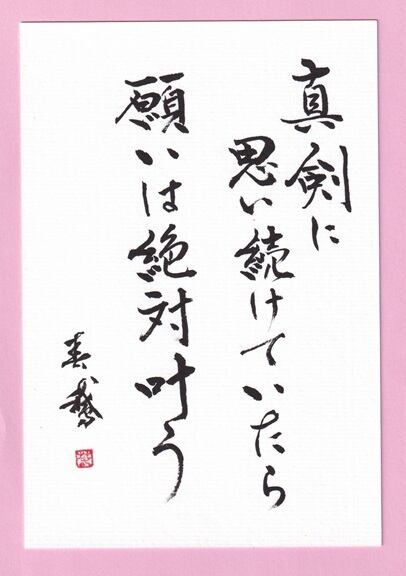 真剣に
思い続けていたら
願いは絶対叶う
春鵞